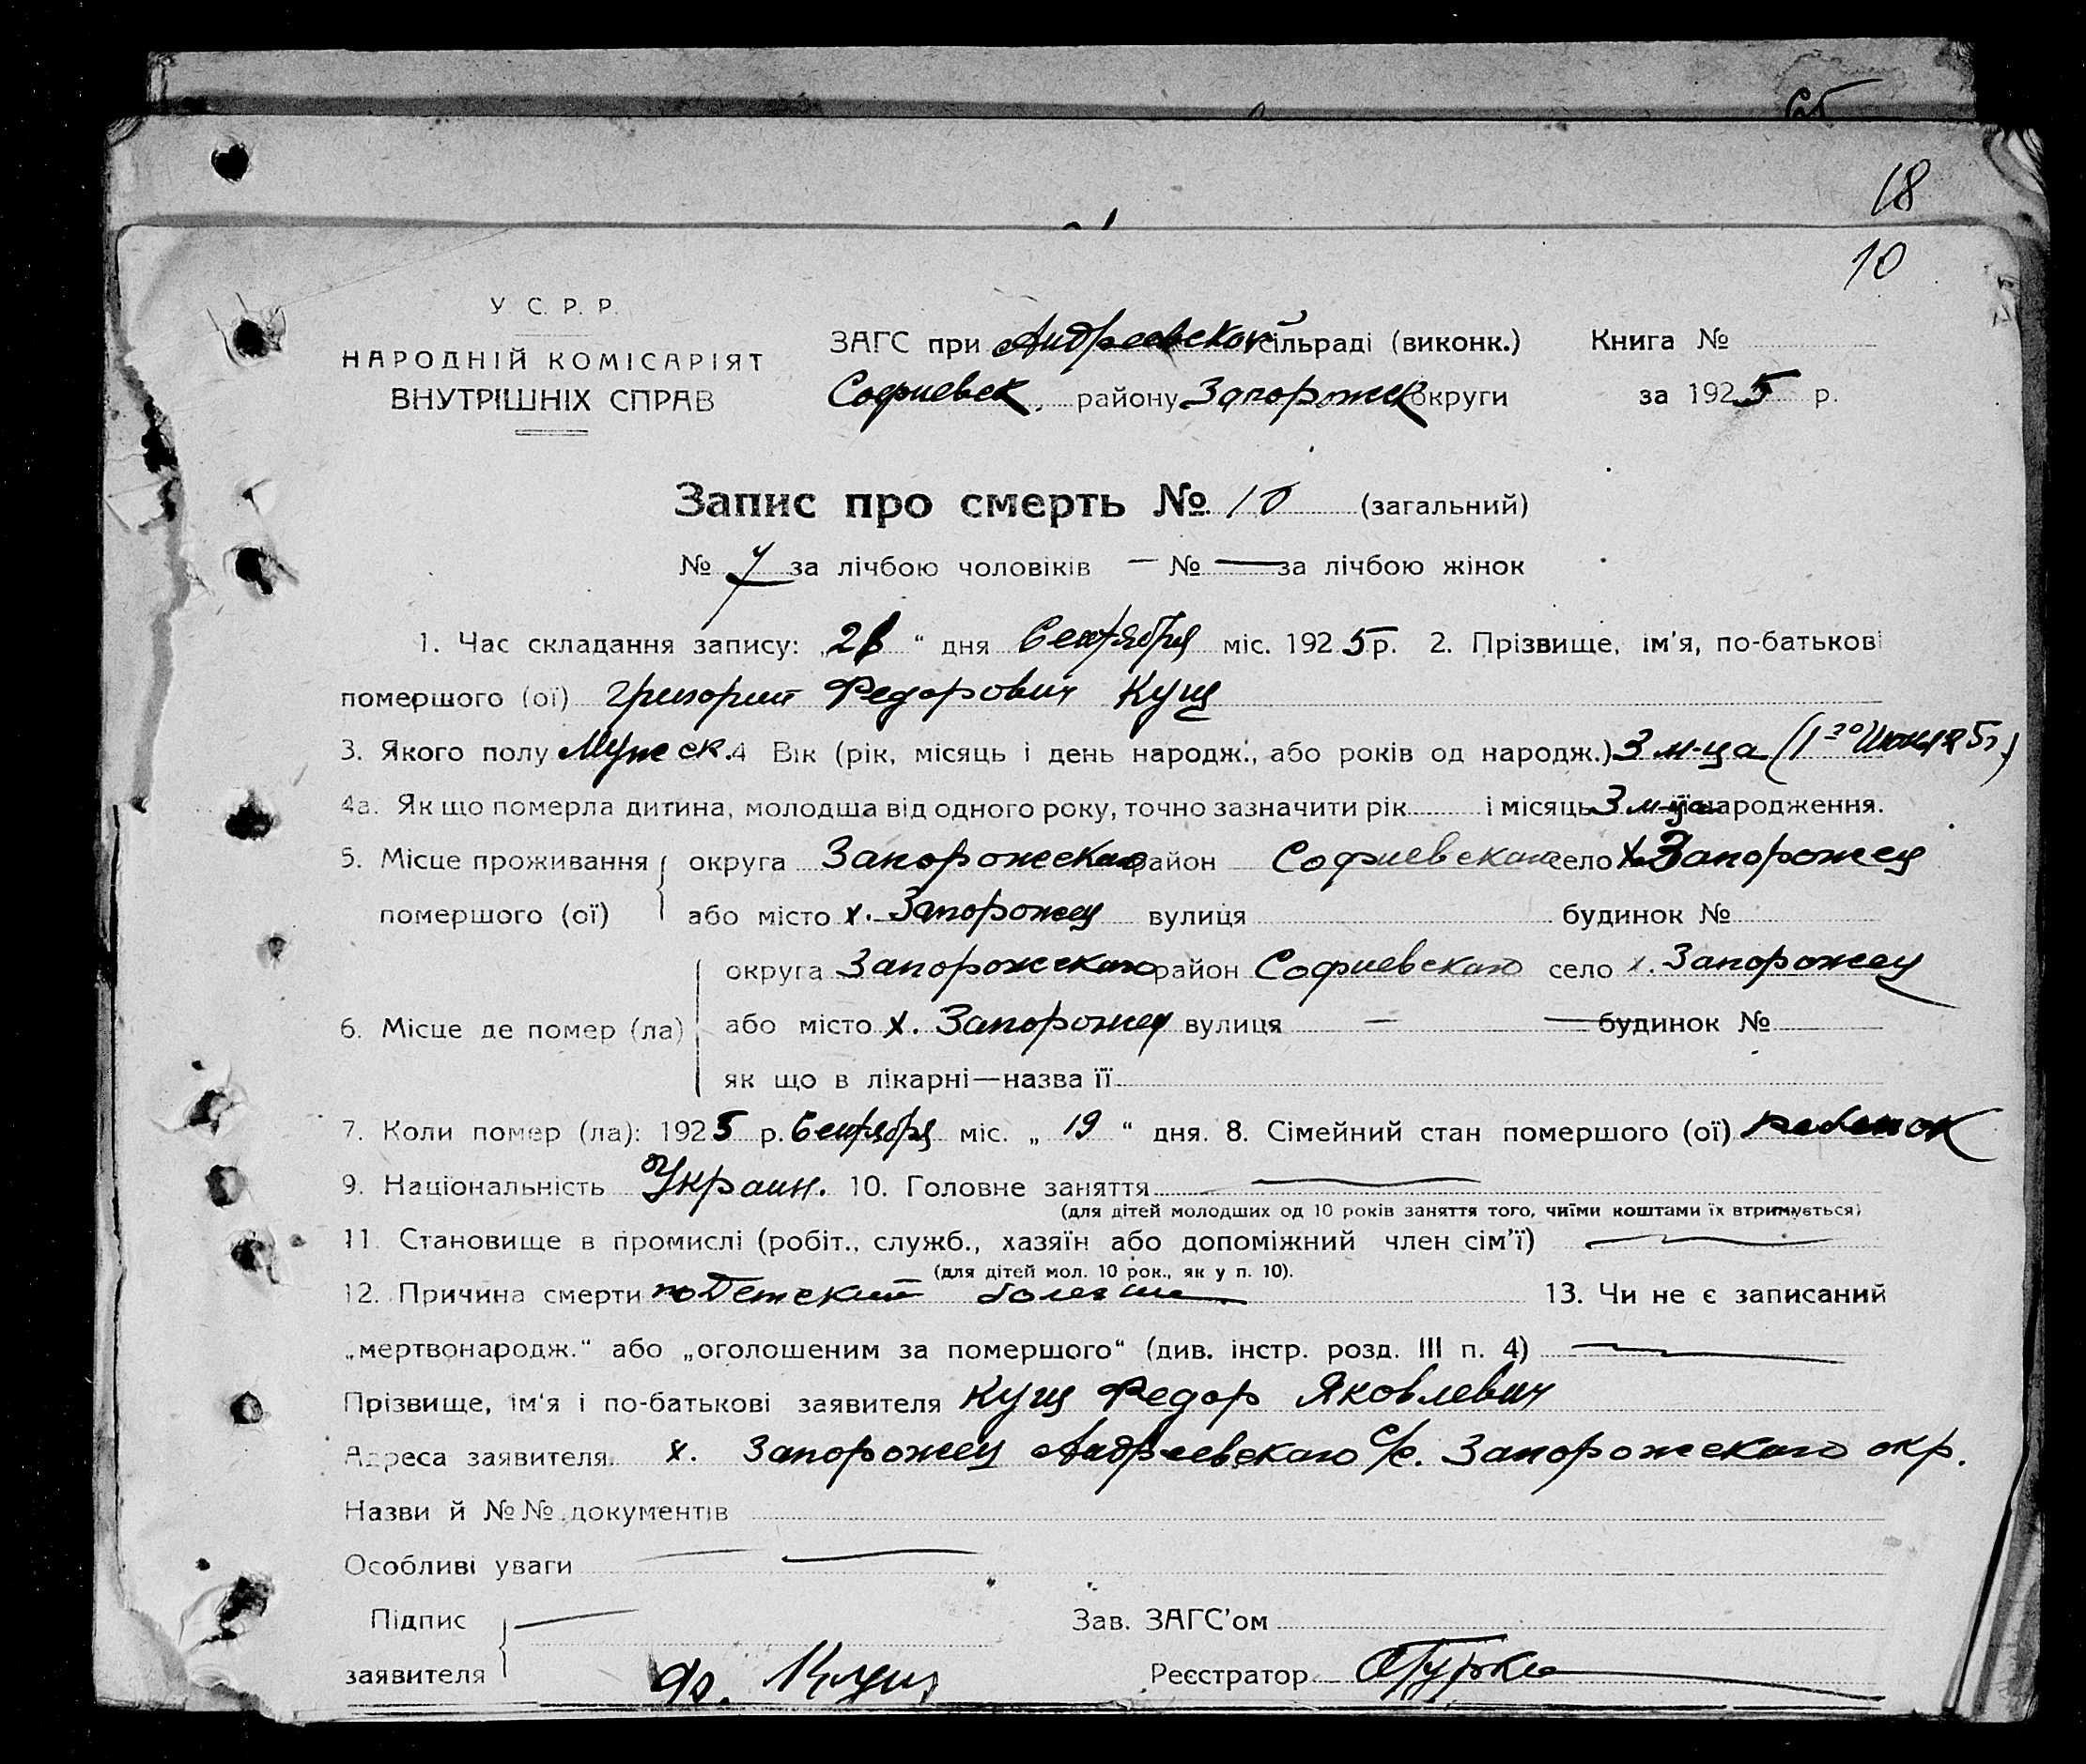 18
10
У С. Р. Р.
НАРОДНІЙ КОМІСАРІЯТ
ВНУТРІШНІХ СПРАВ
ЗАГС при Андреевской сільраді (виконк.)
Софиевск. району Запорожск округи
Книга №
за 1925 р.
Запис про смерть № 10 (загальний)
№ 7 за лічбою чоловіків — № — за лічбою жінок
1. Час складання запису: „ “ дня Сентября міс. 1925 р. 2. Прізвище, ім'я, по-батькові
помершого (ої) Григорий Федорович Кущ
3. Якого полу Мужеск. 4 Вік (рік, місяць і день народж., або років од народж.) 3 м-ца (1го Июня 25 г)
4а. Як що померла дитина, молодша від одного року, точно зазначити рік і місяць 3 м-ца народження.
5. Місце проживання округа Запорожская район Софиевская село х. Запорожец
помершого (ої) або місто х. Запорожец вулиця будинок №
округа Запорожскаго район Софиевскаго село х. Запорожец
6. Місце де помер (ла) або місто х. Запорожец вулиця — — будинок №
як що в лікарні—назва її
7. Коли помер (ла): 1925 р. Сентября міс. „ 19 “ дня. 8. Сімейний стан помершого (ої) ребенок
9. Національність Украин. 10. Головне заняття —
(для дітей молодших од 10 років заняття того, чиїми коштами їх втримується)
11. Становище в промислі (робіт., служб., хазяїн або допоміжний член сім'ї) —
(для дітей мол. 10 рок., як у п. 10).
12. Причина смерти по Детский болезни 13. Чи не є записаний
„мертвонародж.“ або „оголошеним за помершого“ (див. інстр. розд. III п. 4) —
Прізвище, ім'я і по-батькові заявителя Кущ Федор Яковлевич
Адреса заявителя х. Запорожец Андреевскаго с/с. Запорожскаго окр.
Назви й №№ документів
Особливі уваги —
Підпис
заявителя Фо. Кущ
Зав. ЗАГС'ом
Реєстратор